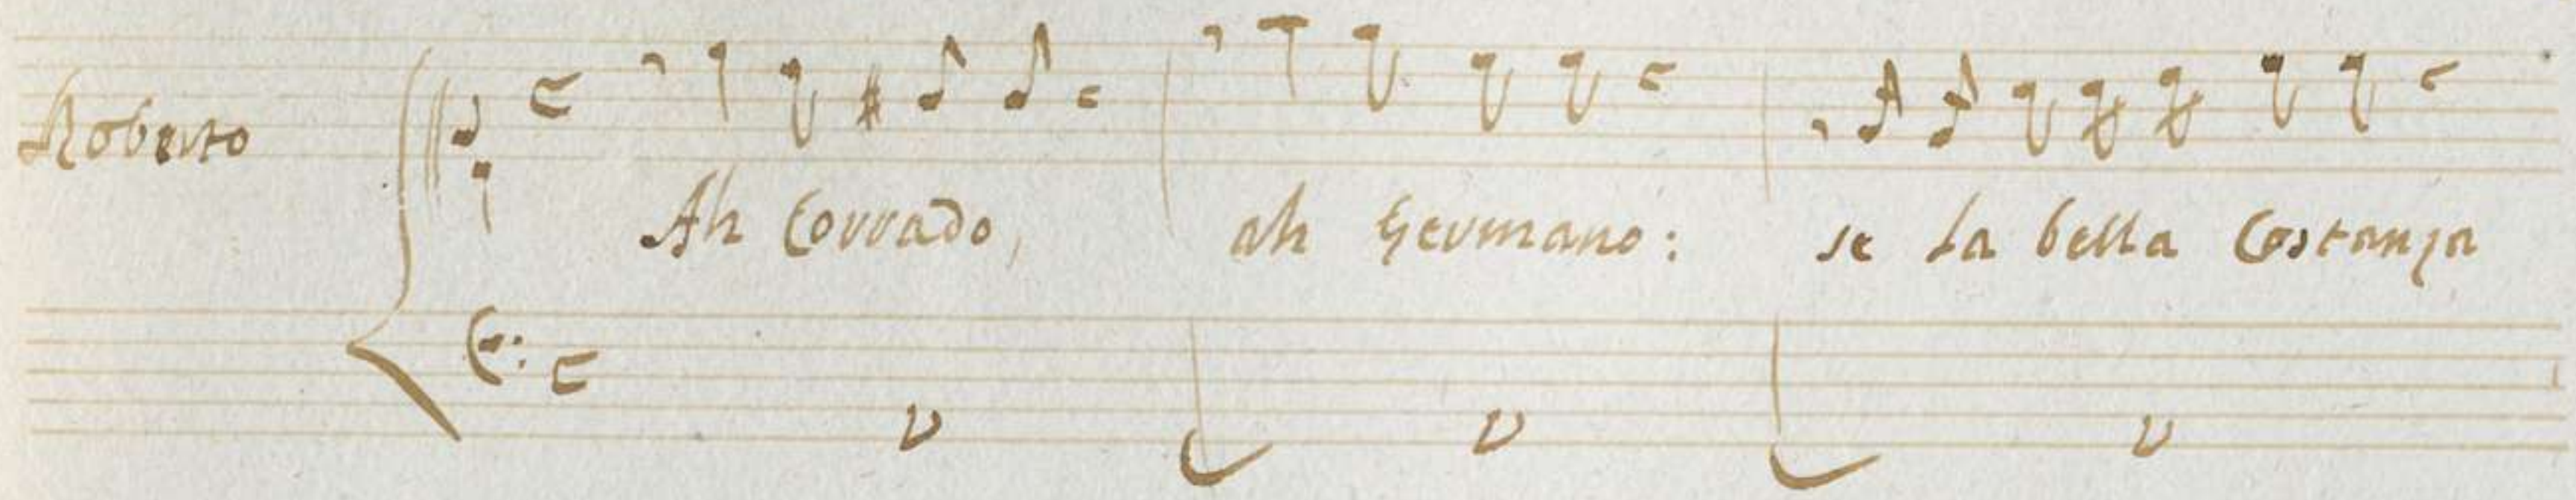 Roberto
Ah Corrado, ah Germano: se la bella Costanza